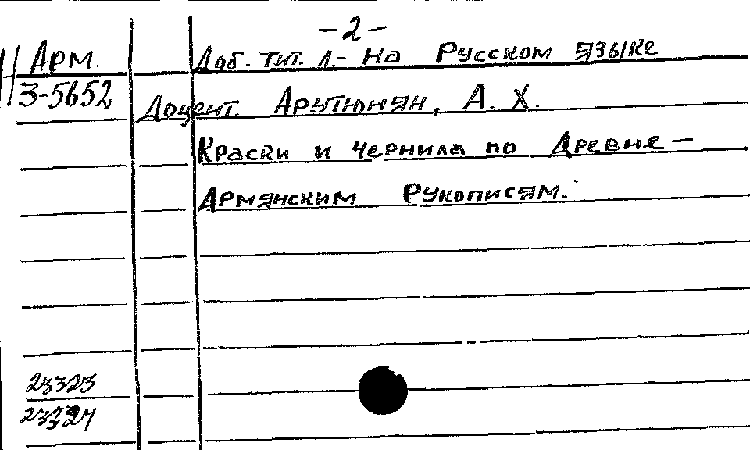 -2-
Арм. Доб. тит. л- на Русском языке
3-5652 Доцент. Арутюнян, А. Х.
Краски и чернила по Древне-
Армянским Рукописям.
23323
23324